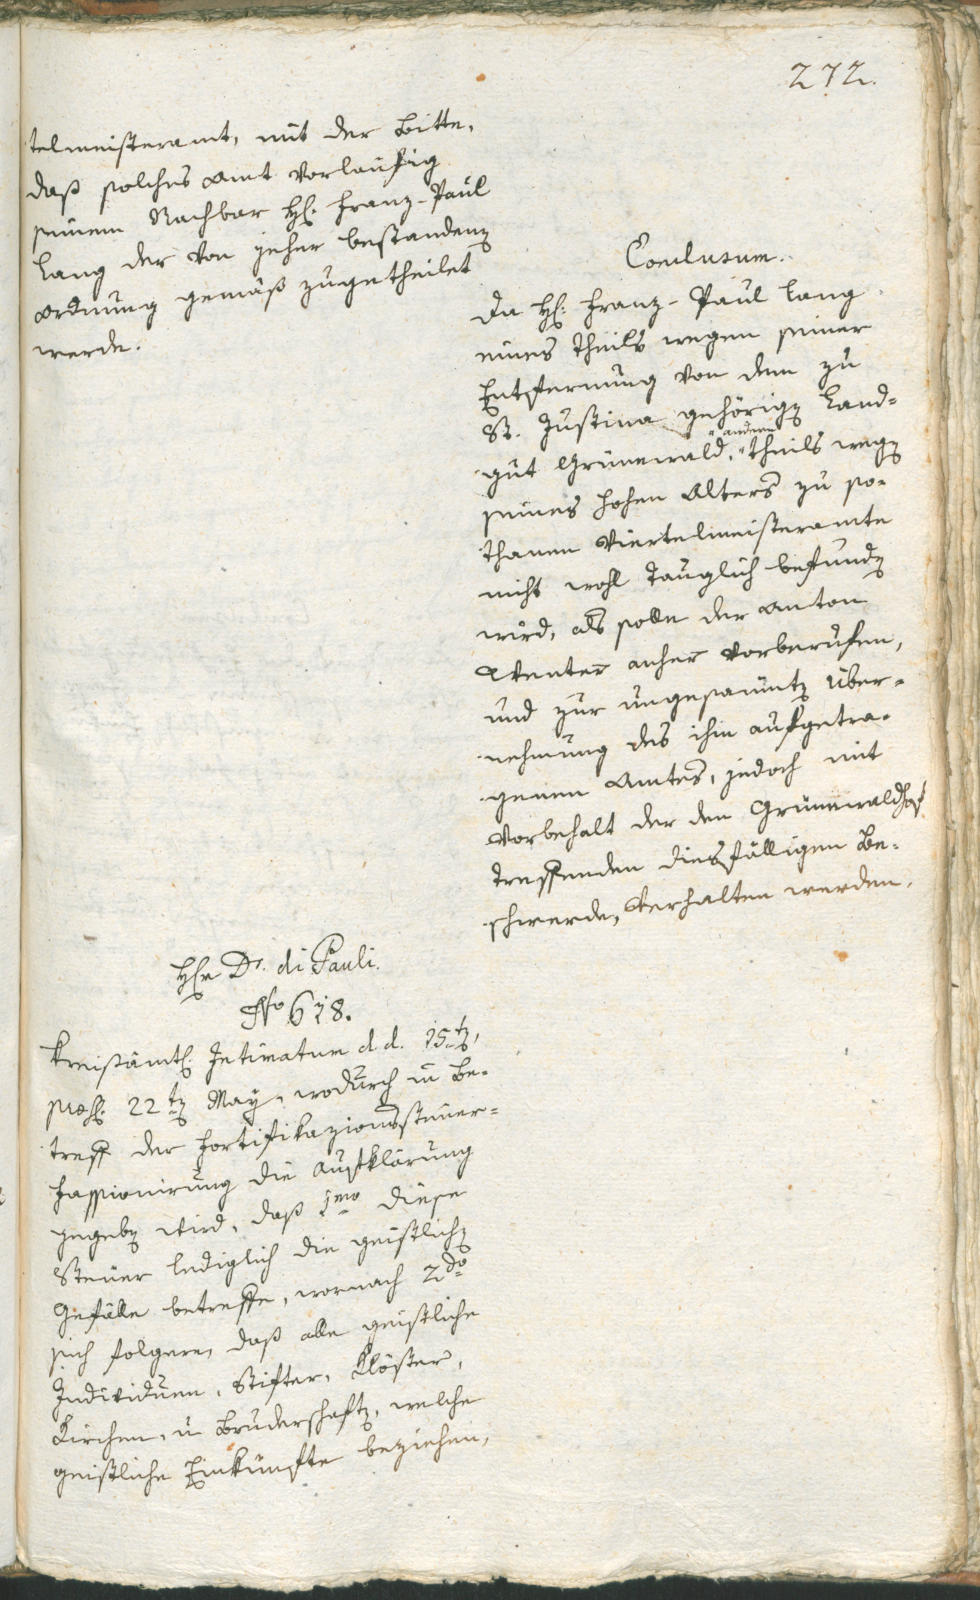 272.
telmeisteramt, mit der Bitte,
daß solches Amt vorläufig
seinem Nachbar H: Franz-Paul
Lang der von jeher bestanden
Ordnung gemäß zugetheilet
werde.
Conclusum.
Da H: Franz-Paul Lang
eines Theils wegen seiner
Entfernung von dem zu
St. Justina gehörig Land-
gut Grünewald, andern Theils weg
seines hohen Alters zu so-
thanen Viertelmeisteramte
nicht wohl tauglich befund
wird, als solle der Anton
Wenter anher vorberufen,
und zur ungesaumt Über-
nehmung des ihm aufgetra-
genen Amtes, jedoch mit
Vorbehalt der den Grünewaldhof
treffenden diesfälligen Be-
schwerde, verhalten werden.
Hr Dr. di Pauli.
No 678.
Kreisämtl: Intimatum d.d. 15t,
præs: 22t May, wodurch in Be-
treff der Fortifikazionssteuer-
Fassionirung die Aufklärung
gegeb wird, daß 1mo diese
Steuer lediglich die geistlich
Gefälle betreffe, wornach 2do
sich folgere, daß alle geistliche
Individuen, Stifter, Klöster,
Kirchen, u Bruderschaft, welche
geistliche Einkünfte beziehen,